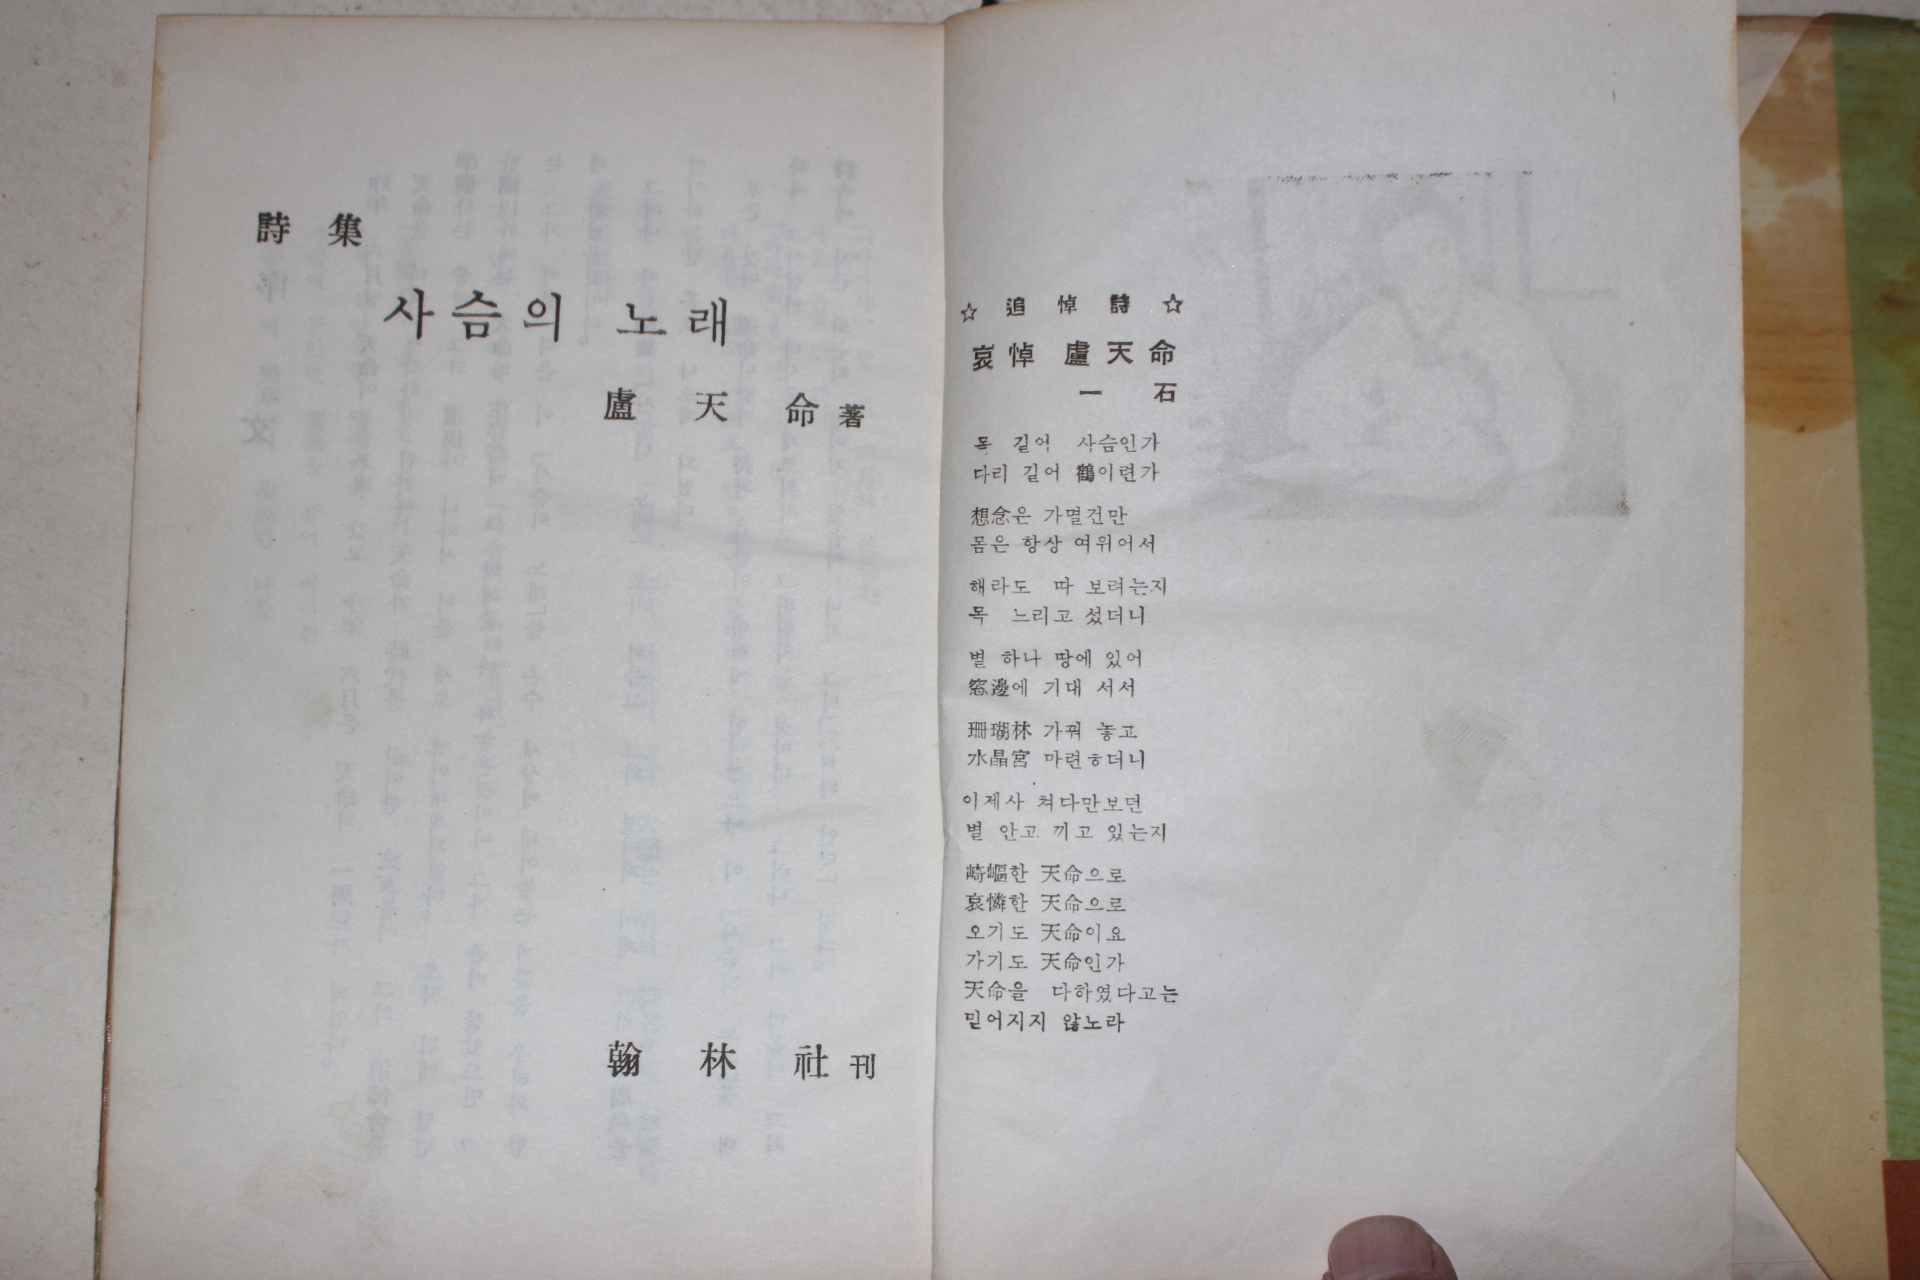 詩集
사슴의 노래
盧天命著
翰林社刊
☆ 追悼詩 ☆
哀悼 盧天命
一石
목 길어 사슴인가
다리 길어 鶴이련가
想念은 가멸건만
몸은 항상 여위어서
해라도 따 보려는지
목 느리고 섰더니
별 하나 땅에 있어
窓邊에 기대 서서
珊瑚林 가꿔 놓고
水晶宮 마련ㅎ더니
이제사 쳐다만보던
별 안고 끼고 있는지
崎嶇한 天命으로
哀憐한 天命으로
오기도 天命이요
가기도 天命인가
天命을 다하였다고는
믿어지지 않노라